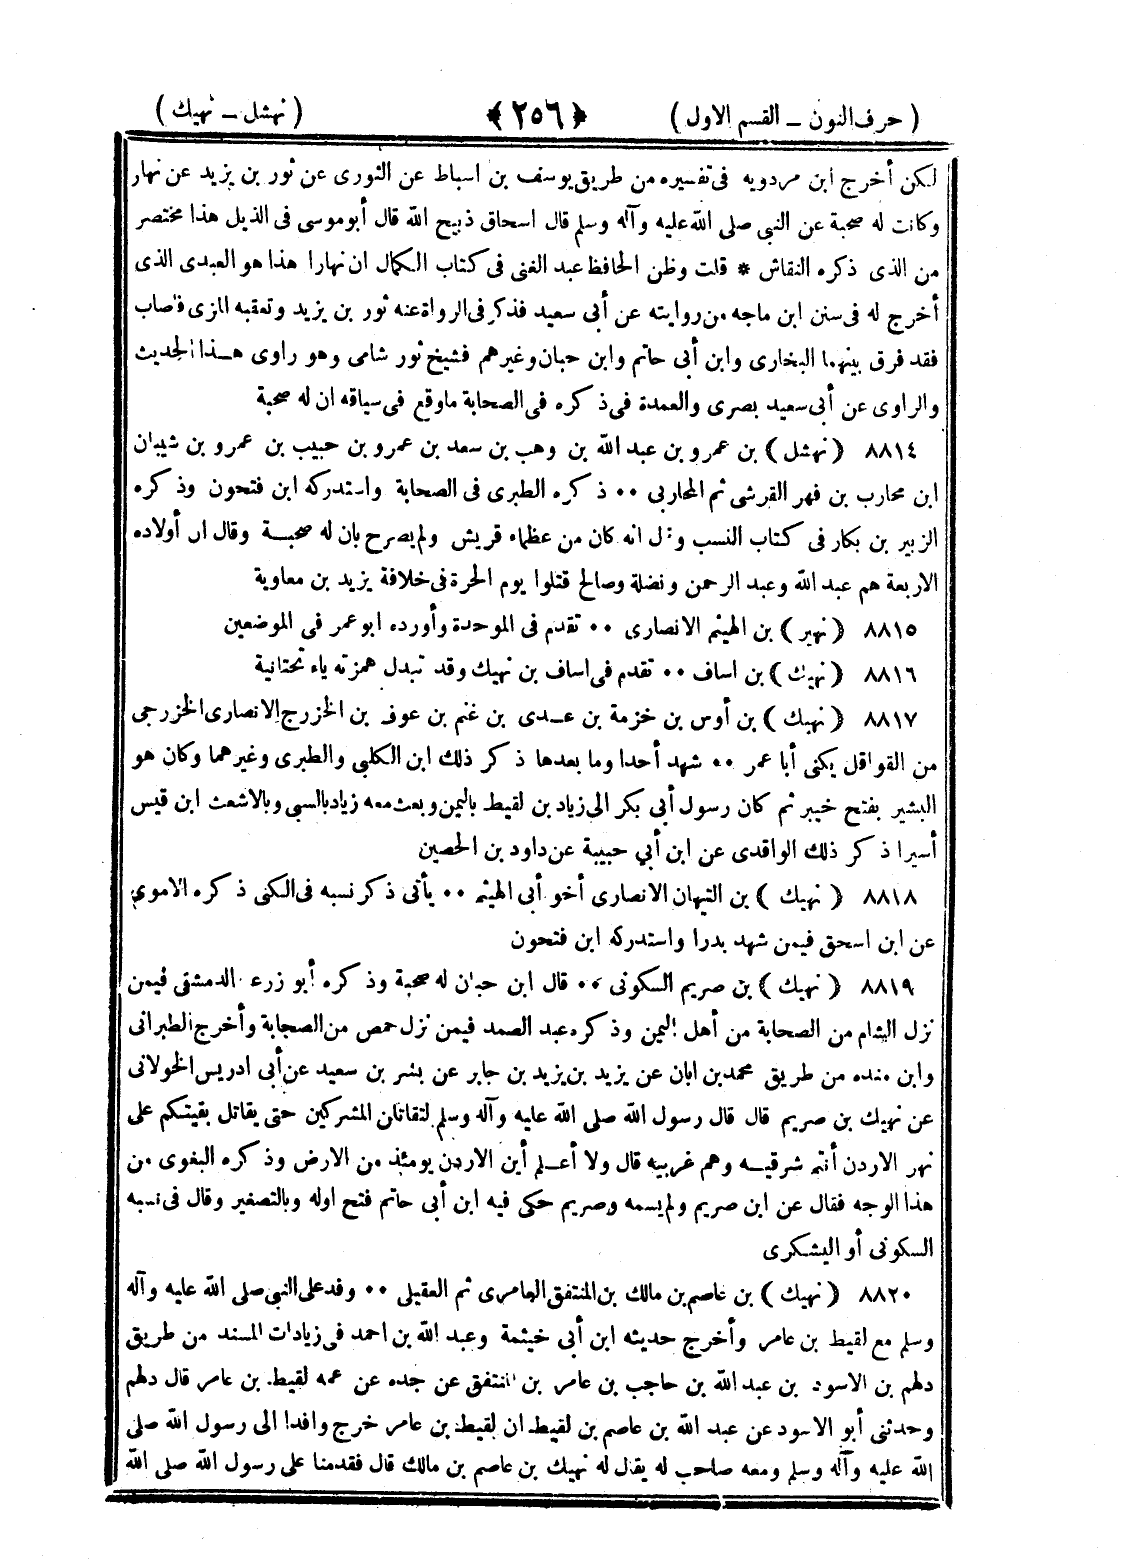 ( حرف النون ــ القسم الاول ) ﴿ ٢٥٦ ﴾ ( نهشل ــ نهيك )
لكن أخرج ابن مردويه فى تفسيره من طريق يوسف بن اسباط عن الثورى عن ثور بن يزيد عن نهار
وكانت له صحبة عن النبى صلى الله عليه وآله وسلم قال اسحاق ذبيح الله قال أبو موسى فى الذيل هذا مختصر
من الذى ذكره النقاش * قلت وظن الحافظ عبد الغنى فى كتاب الكمال ان نهارا هذا هو العبدى الذى
أخرج له فى سنن ابن ماجه من روايته عن أبى سعيد فذكر فى الرواة عنه ثور بن يزيد وتعقبه المزى فاصاب
فقد فرق بينهما البخارى وابن أبى حاتم وابن حبان وغيرهم فشيخ ثور شامى وهو راوى هــذا الحديث
والراوى عن أبى سعيد بصرى والعمدة فى ذكره فى الصحابة ماوقع فى سياقه ان له صحبة
٨٨١٤ ( نهشل ) بن عمرو بن عبد الله بن وهب بن سعد بن عمرو بن حبيب بن عمرو بن شيبان
ابن محارب بن فهر القرشى ثم المحاربى ٠٠ ذكره الطبرى فى الصحابة واستدركه ابن فتحون وذكره
الزبير بن بكار فى كتاب النسب وقال انه كان من عظماء قريش ولم يصرح بان له صحبــة وقال ان أولاده
الاربعة هم عبد الله وعبد الرحمن ونضلة وصالح قتلوا يوم الحرة فى خلافة يزيد بن معاوية
٨٨١٥ ( نهير ) بن الهيثم الانصارى ٠٠ تقدم فى الموحدة وأورده ابو عمر فى الموضعين
٨٨١٦ ( نهيك ) بن اساف ٠٠ تقدم فى اساف بن نهيك وقد تبدل همزته ياء تحتانية
٨٨١٧ ( نهيك ) بن أوس بن خزمة بن عــدى بن غنم بن عوف بن الخزرج الانصارى الخزرجى
من القواقل يكنى أبا عمر ٠٠ شهد أحدا وما بعدها ذكر ذلك ابن الكلبى والطبرى وغيرهما وكان هو
البشير بفتح خيبر ثم كان رسول أبى بكر الى زياد بن لقيط باليمن وبعث معه زياد بالسبى وبالاشعث ابن قيس
أسيرا ذكر ذلك الواقدى عن ابن أبي حبيبة عن داود بن الحصين
٨٨١٨ ( نهيك ) بن التيهان الانصارى أخو أبى الهيثم ٠٠ يأتى ذكر نسبه فى الكنى ذكره الاموي
عن ابن اسحق فيمن شهد بدرا واستدركه ابن فتحون
٨٨١٩ ( نهيك ) بن صريم السكونى ٠٠ قال ابن حبان له صحبة وذكره أبو زرعة الدمشقى فيمن
نزل الشام من الصحابة من أهل اليمن وذكره عبد الصمد فيمن نزل حمص من الصحابة وأخرج الطبرانى
وابن منده من طريق محمد بن ابان عن يزيد بن يزيد بن جابر عن بشر بن سعيد عن أبى ادريس الخولانى
عن نهيك بن صريم قال قال رسول الله صلى الله عليه وآله وسلم لتقاتلن المشركين حتى يقاتل بقيتكم على
نهر الاردن أنتم شرقيــه وهم غربيه قال ولا أعــلم أين الاردن يومئذ من الارض وذكره البغوى من
هذا الوجه فقال عن ابن صريم ولم يسمه وصريم حكى فيه ابن أبى حاتم فتح اوله وبالتصغير وقال فى نسبه
السكونى أو اليشكرى
٨٨٢٠ ( نهيك ) بن عاصم بن مالك بن المنتفق العامرى ثم العقيلى ٠٠ وفد على النبى صلى الله عليه وآله
وسلم مع لقيط بن عامر وأخرج حديثه ابن أبى خيثمة وعبد الله بن احمد فى زيادات المسند من طريق
دلهم بن الاسود بن عبد الله بن حاجب بن عامر بن المنتفق عن جده عن عمه لقيط بن عامر قال دلهم
وحدثنى أبو الاسود عن عبد الله بن عاصم بن لقيط ان لقيط بن عامر خرج وافدا الى رسول الله صلى
الله عليه وآله وسلم ومعه صاحب له يقال له نهيك بن عاصم بن مالك قال فقدمنا على رسول الله صلى الله